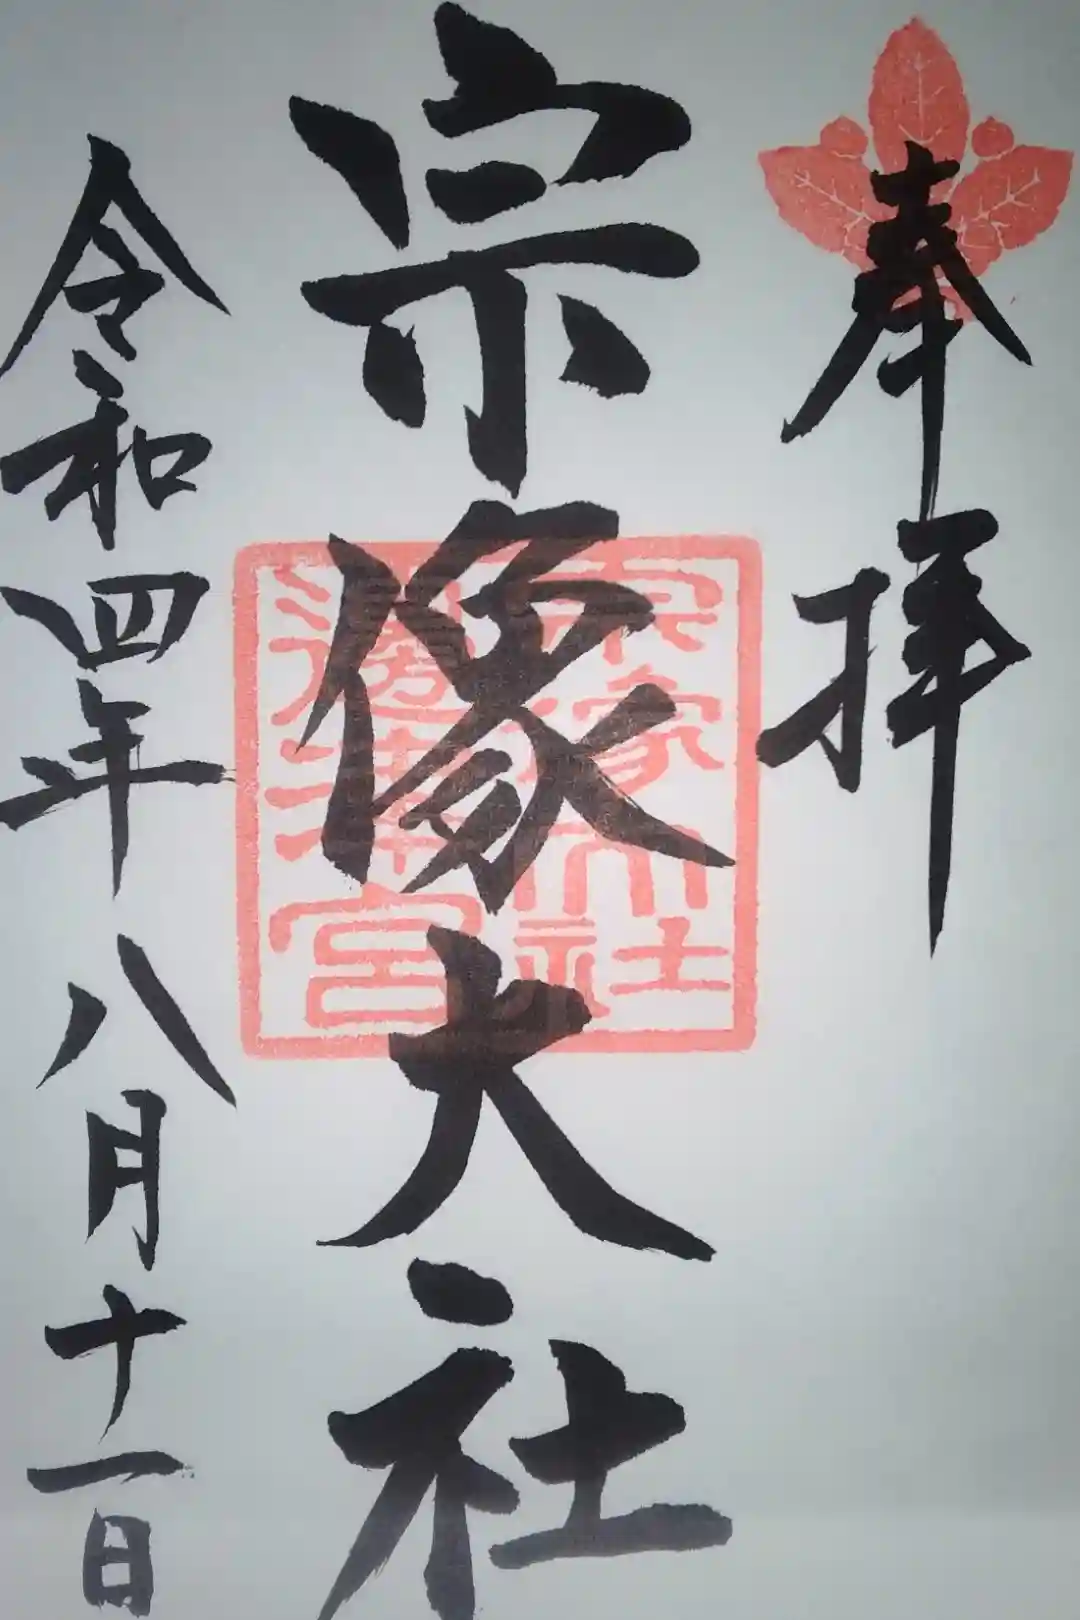 奉拝
宗像大社
宗像大社
邊津宮
令和四年八月十一日